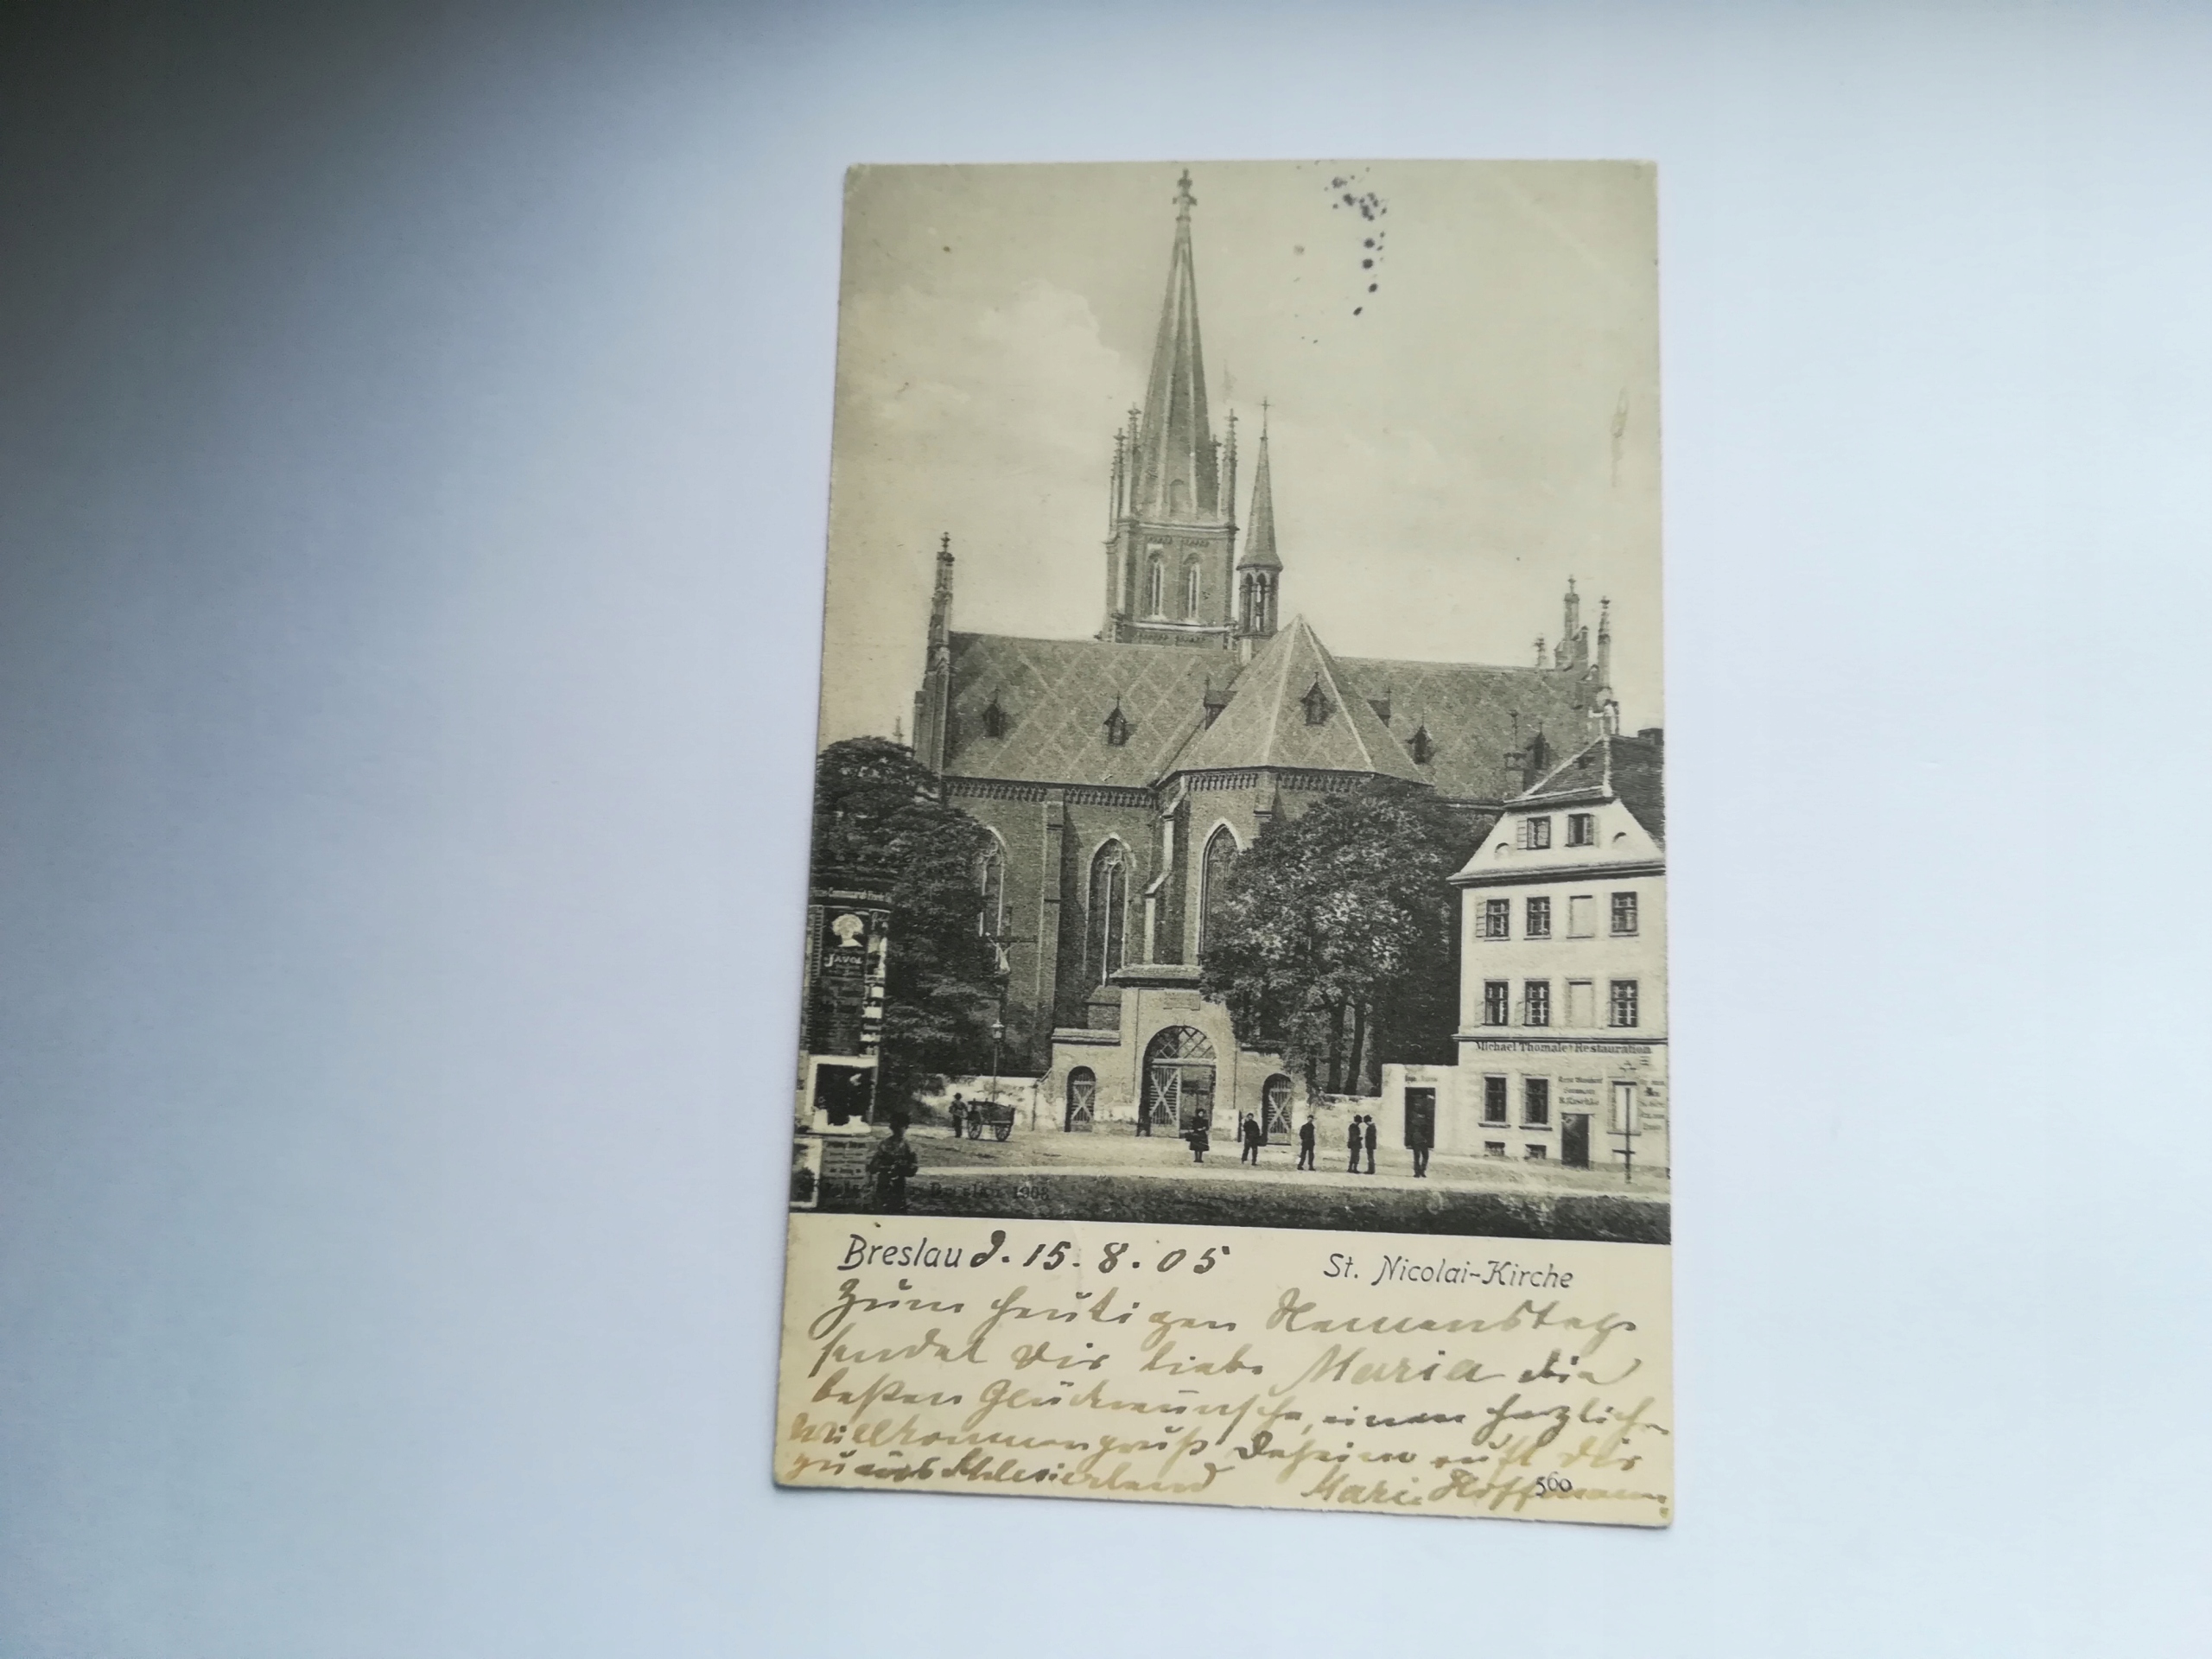 JAVOL
Michael Thomale's Restauration
Breslau d. 15. 8. 05
St. Nicolai-Kirche
Zum heutigen Namenstage
sendet Dir liebe Maria die
besten Glückwünsche, einen herzlichen
Willkommengruß Daheim ruft Dir
zu aus Schlesierland
Marie Hoffmann.
560